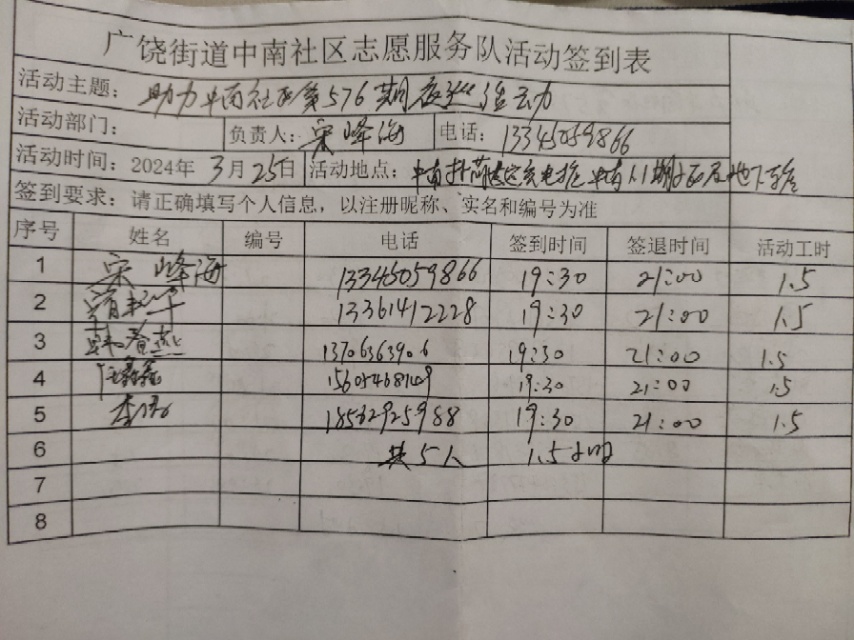 广饶街道中南社区志愿服务队活动签到表
活动主题：助力中南社区第576期夜巡活动
活动部门： 负责人：宋峰海 电话：13345059866
活动时间：2024年3月25日 活动地点：中南
签到要求：请正确填写个人信息，以注册昵称、实名和编号为准
序号 姓名 编号 电话 签到时间 签退时间 活动工时
1 宋峰海 13345059866 19:30 21:00 1.5
2 13361412228 19:30 21:00 1.5
3 韩春燕 13706363906 19:30 21:00 1.5
4 19:30 21:00 1.5
5 18562925988 19:30 21:00 1.5
6 共5人 1.5小时
7
8